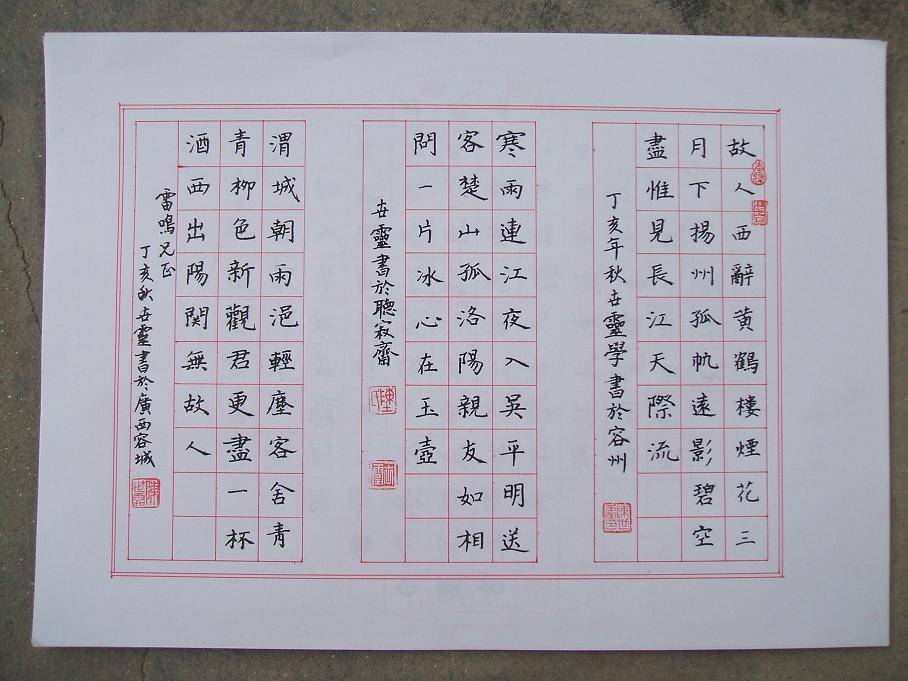 故人西辭黄鶴樓煙花三
月下揚州孤帆遠影碧空
盡惟見長江天際流
丁亥年秋世靈學書於容州
寒雨連江夜入吳平明送
客楚山孤洛陽親友如相
問一片冰心在玉壺
世靈書於聽寂齋
渭城朝雨浥輕塵客舍青
青柳色新觀君更盡一杯
酒西出陽関無故人
雷鳴兄正
丁亥秋世靈書於廣西容城